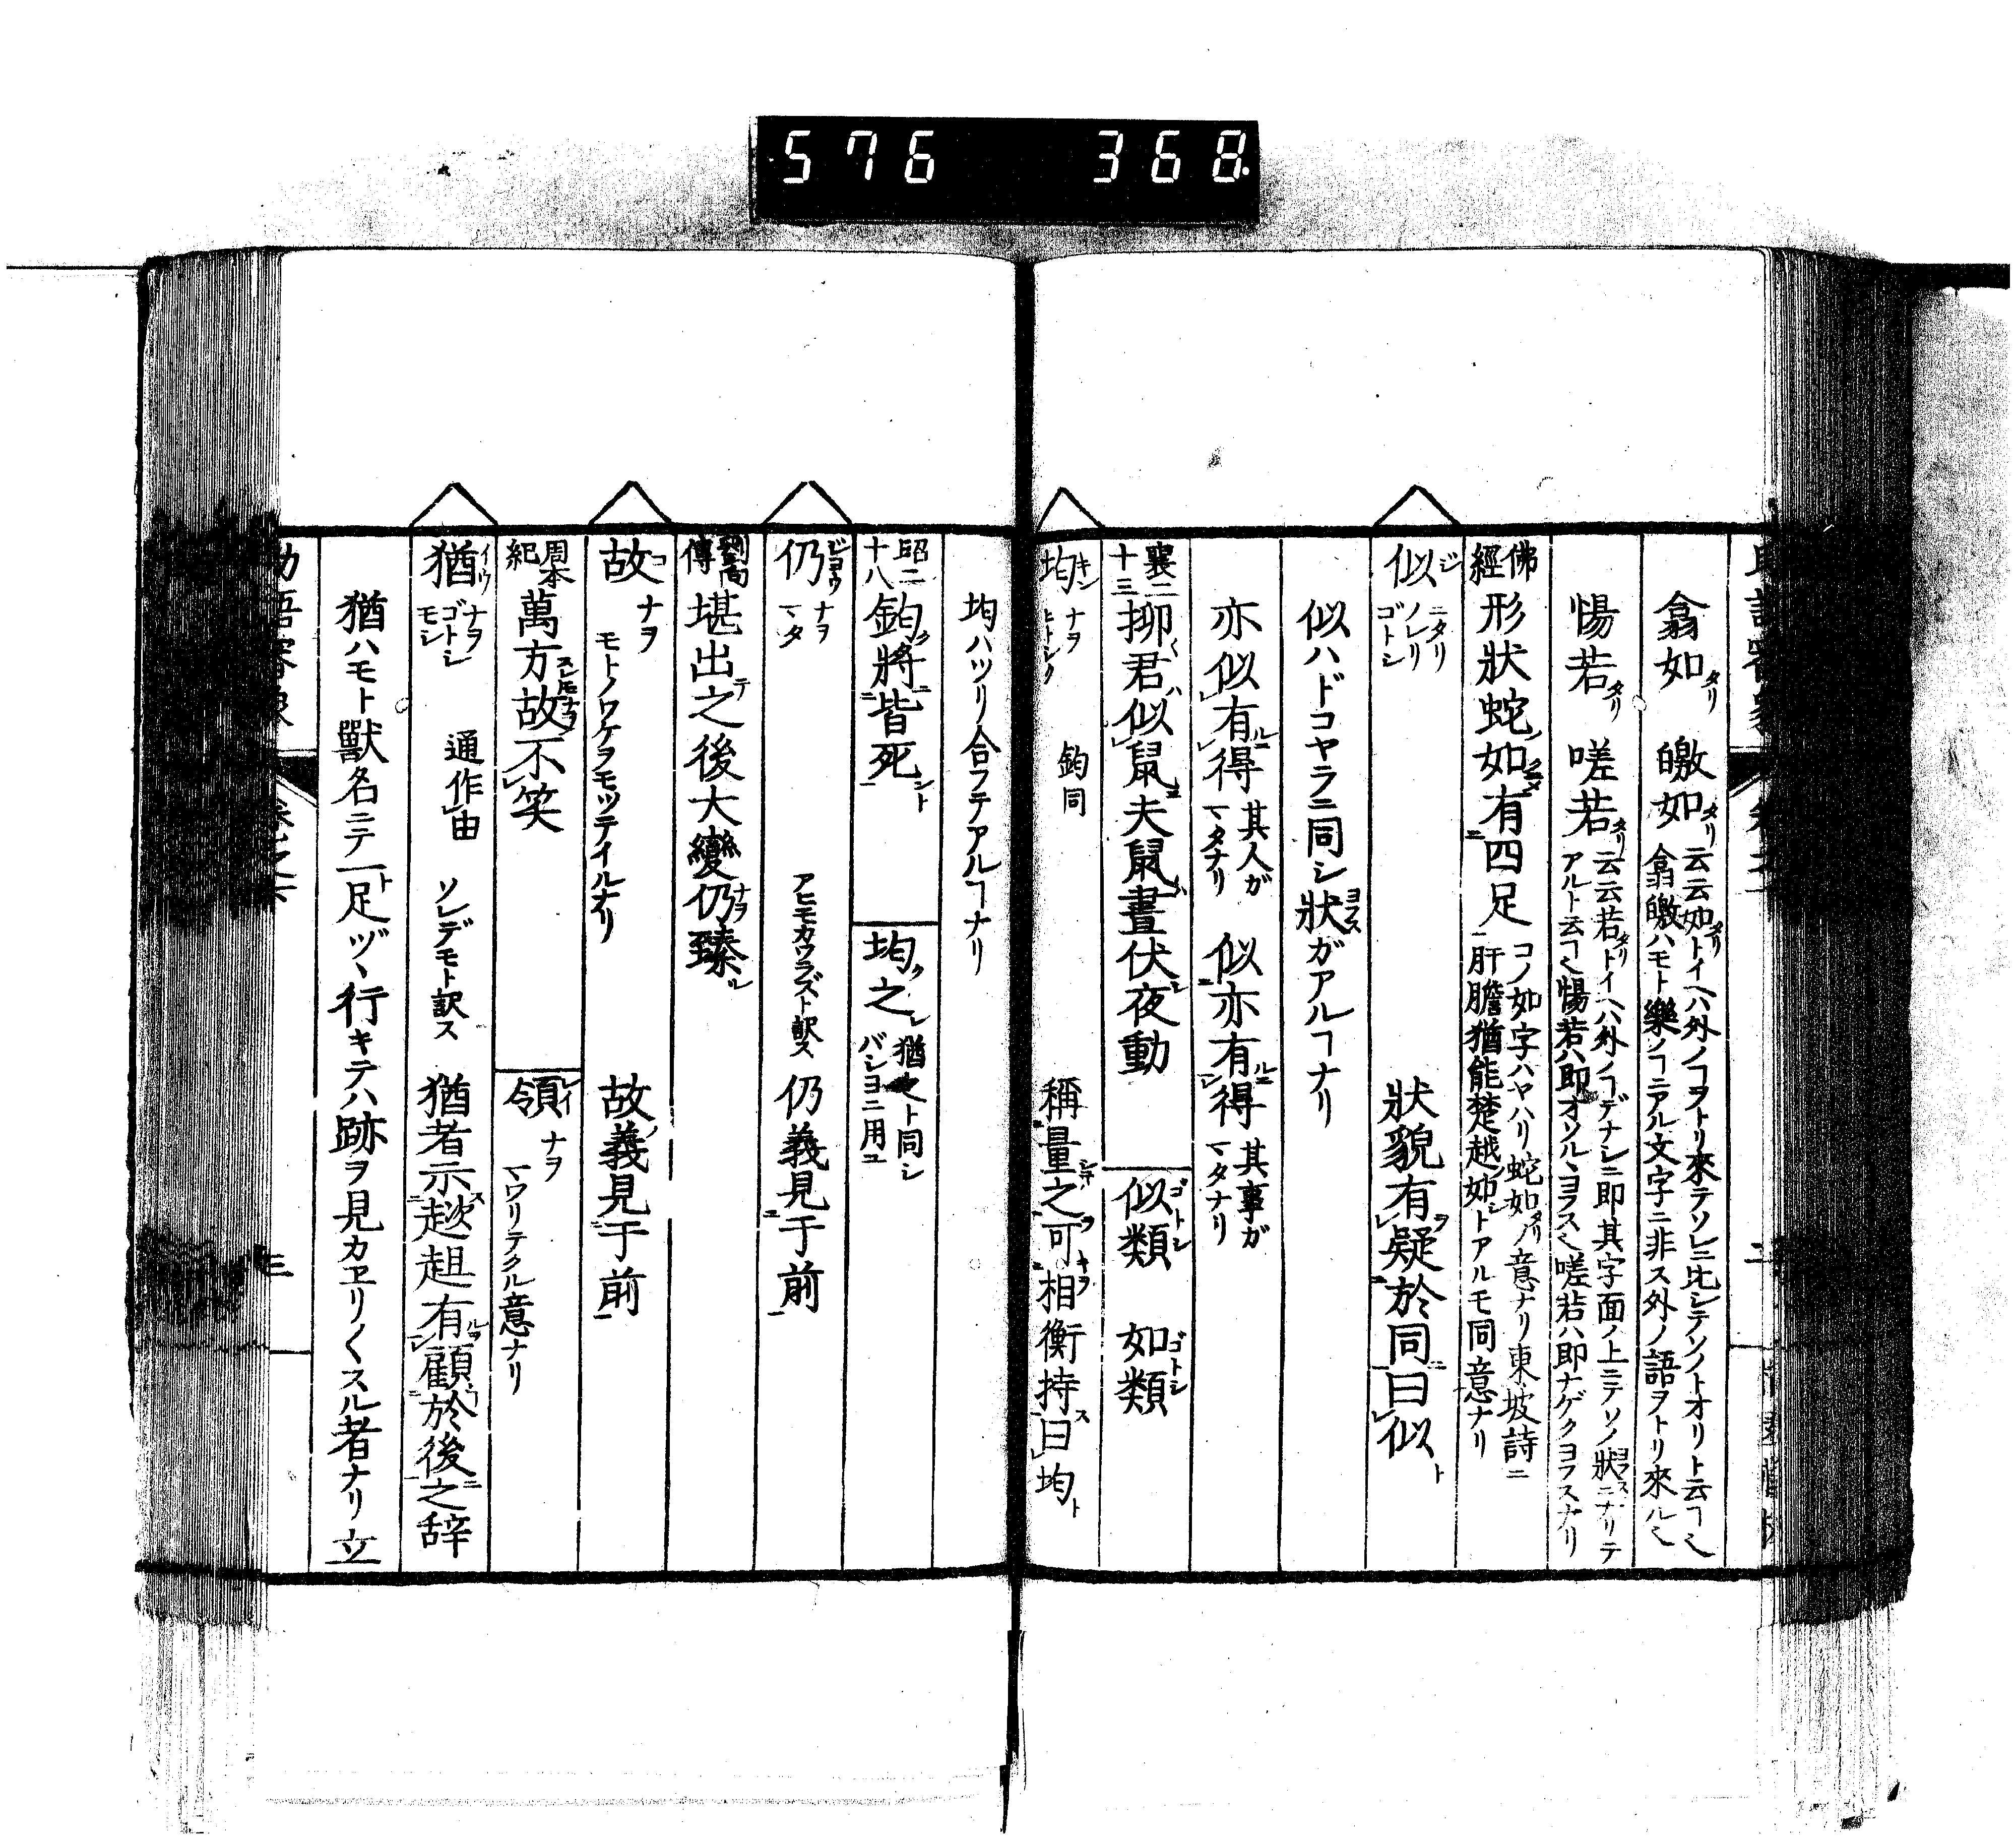 576 368
翕如タリ 皦如タリ 云云如タリトイヘバ外ノヿヲトリ來テソレニ比シテソノトオリト云ヿ也
翕皦ハモト樂ノヿニアル文字ニ非ス外ノ語ヲトリ來ル也
惕若タリ 嗟若タリ 云云若タリトイヘバ外ノヿデナシニ即其字面ノ上ニテソノ狀ニナリテ
アルト云ヿ也惕若ハ即オソルヽヨウス也嗟若ハ即ナゲクヨウスナリ
佛經 形狀蛇如有四足 コノ如字ハヤハリ蛇如ノ意ナリ東坡詩ニ
肝膽猶能楚越如トアルモ同意ナリ
似 ジ ニタリ ノレリ ゴトシ 狀貌有疑於同曰似
似ハドコヤラニ同シ狀ガアルヿナリ
亦似有得 其人ガマタナリ 似亦有得 其事ガマタナリ
襄二十三 抑君似鼠夫鼠晝伏夜動 似類 ゴトシ 如類 ゴトシ
均 キン ナヲ ヒトシク 鈞同 稱量之可相衡持曰均
均ハツリ合フテアルヿナリ
昭二十八 鈞將皆死 均之 猶之ト同シバショニ用ユ
仍 ジヨウ ナヲ マタ アヒモカワラズト訳ス 仍義見于前
劉向傳 堪出之後大變仍臻
故 コ ナヲ モトノワケヲモツテイルナリ 故義見于前
周本紀 萬方故不笑 領 レイ ナヲ マワリテクル意ナリ
猶 イウ ナヲ ゴトシ モシ 通作由 ソレデモト訳ス 猶者示趑趄有顧於後之辞
猶ハモト獸名ニテ一足ヅヽ行キテハ跡ヲ見カヱリ〱スル者ナリ立